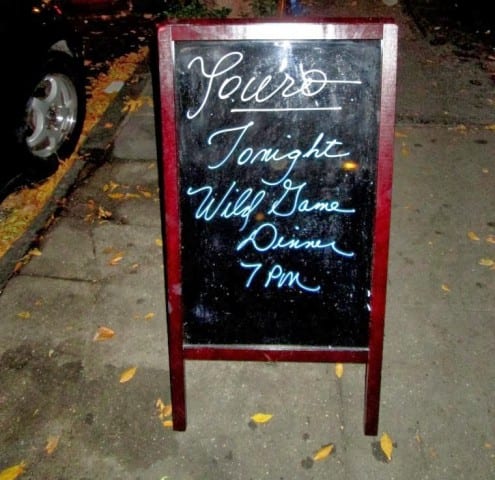 Tonight
Wild Game
Dinner
7 PM